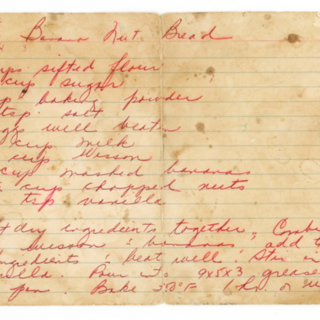 Banana Nut Bread
ups sifted flour
cup sugar
baking powder
tsp. salt
eggs well beaten
cup milk
cup Wesson
cup mashed bananas
cup chopped nuts
tsp vanilla
dry ingredients together, Combine
Wesson & bananas add to
ingredients & beat well. Stir in
nilla. Pour into 9x5x3 greased
pan. Bake 350°F 1 hr or